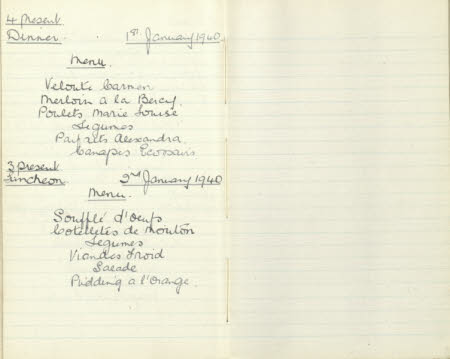 4 Present
Dinner. 1st January 1940.
Menu.
Velouté Carmen
Merloin a la Bercy.
Poulets Marie Louise
Legumes
Parfaits Alexandra.
Canapés Ecossais
3 Present
Luncheon 2nd January 1940
Menu.
Soufflé d'oeufs
Cotellettes de Mouton
Legumes
Viandes Froid
Salade
Pudding a l'Orange.